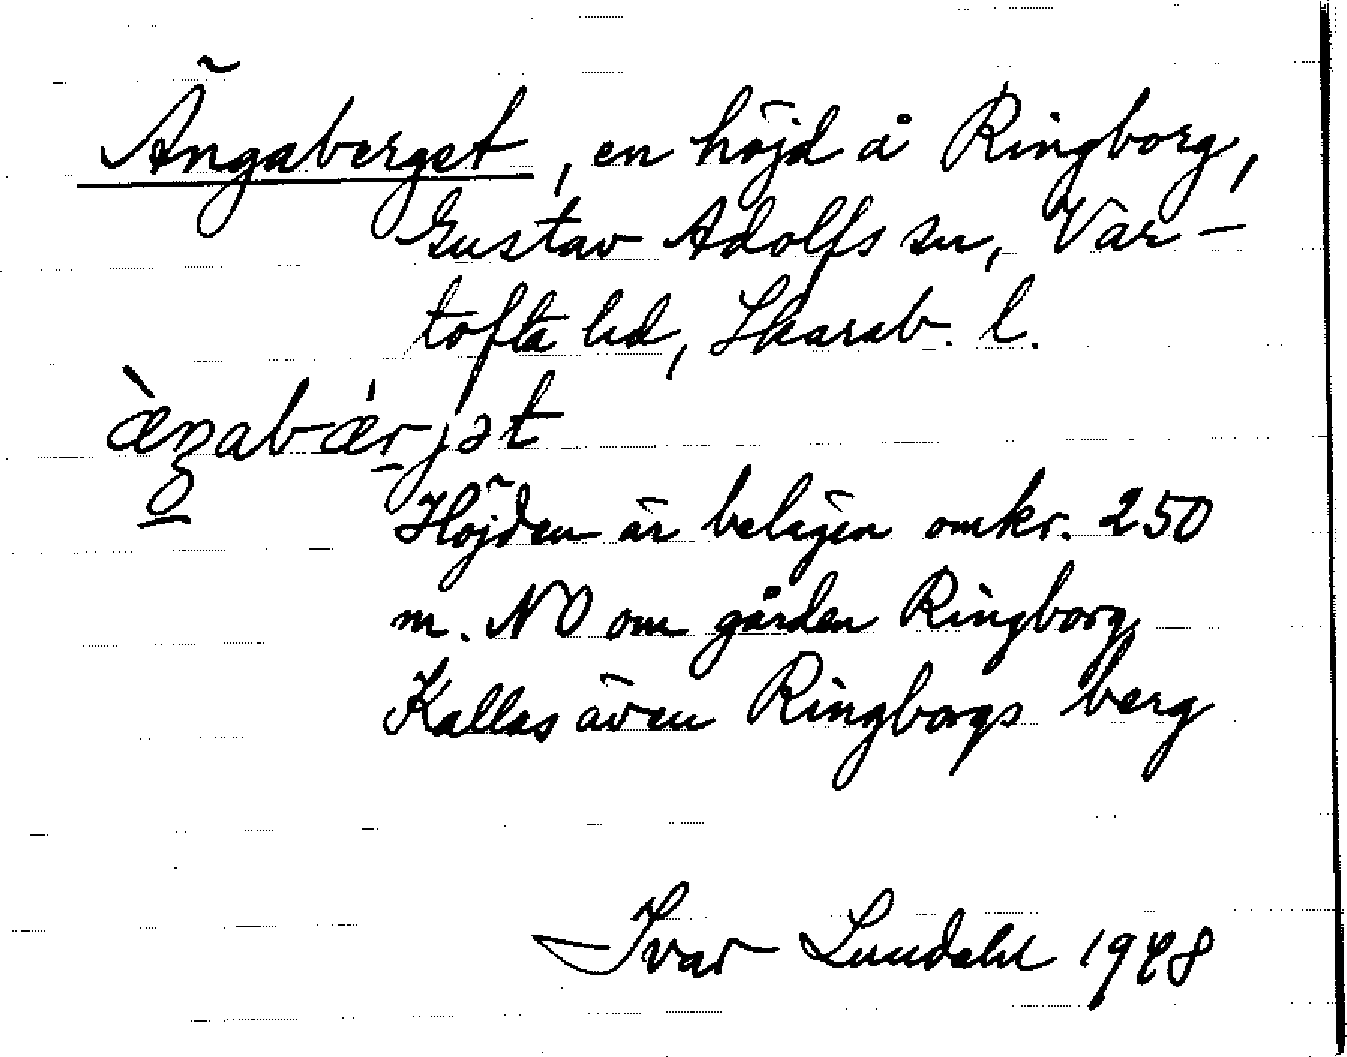 Ängaberget, en höjd å Ringborg,
Gustav Adolfs sn, Var-
tofta hd, Skarab. l.
æ̀ŋabǽrjət
Höjden är belägen omkr. 250
m. NO om gården Ringborg
Kallas även Ringborgs berg
Ivar Lundahl 1948